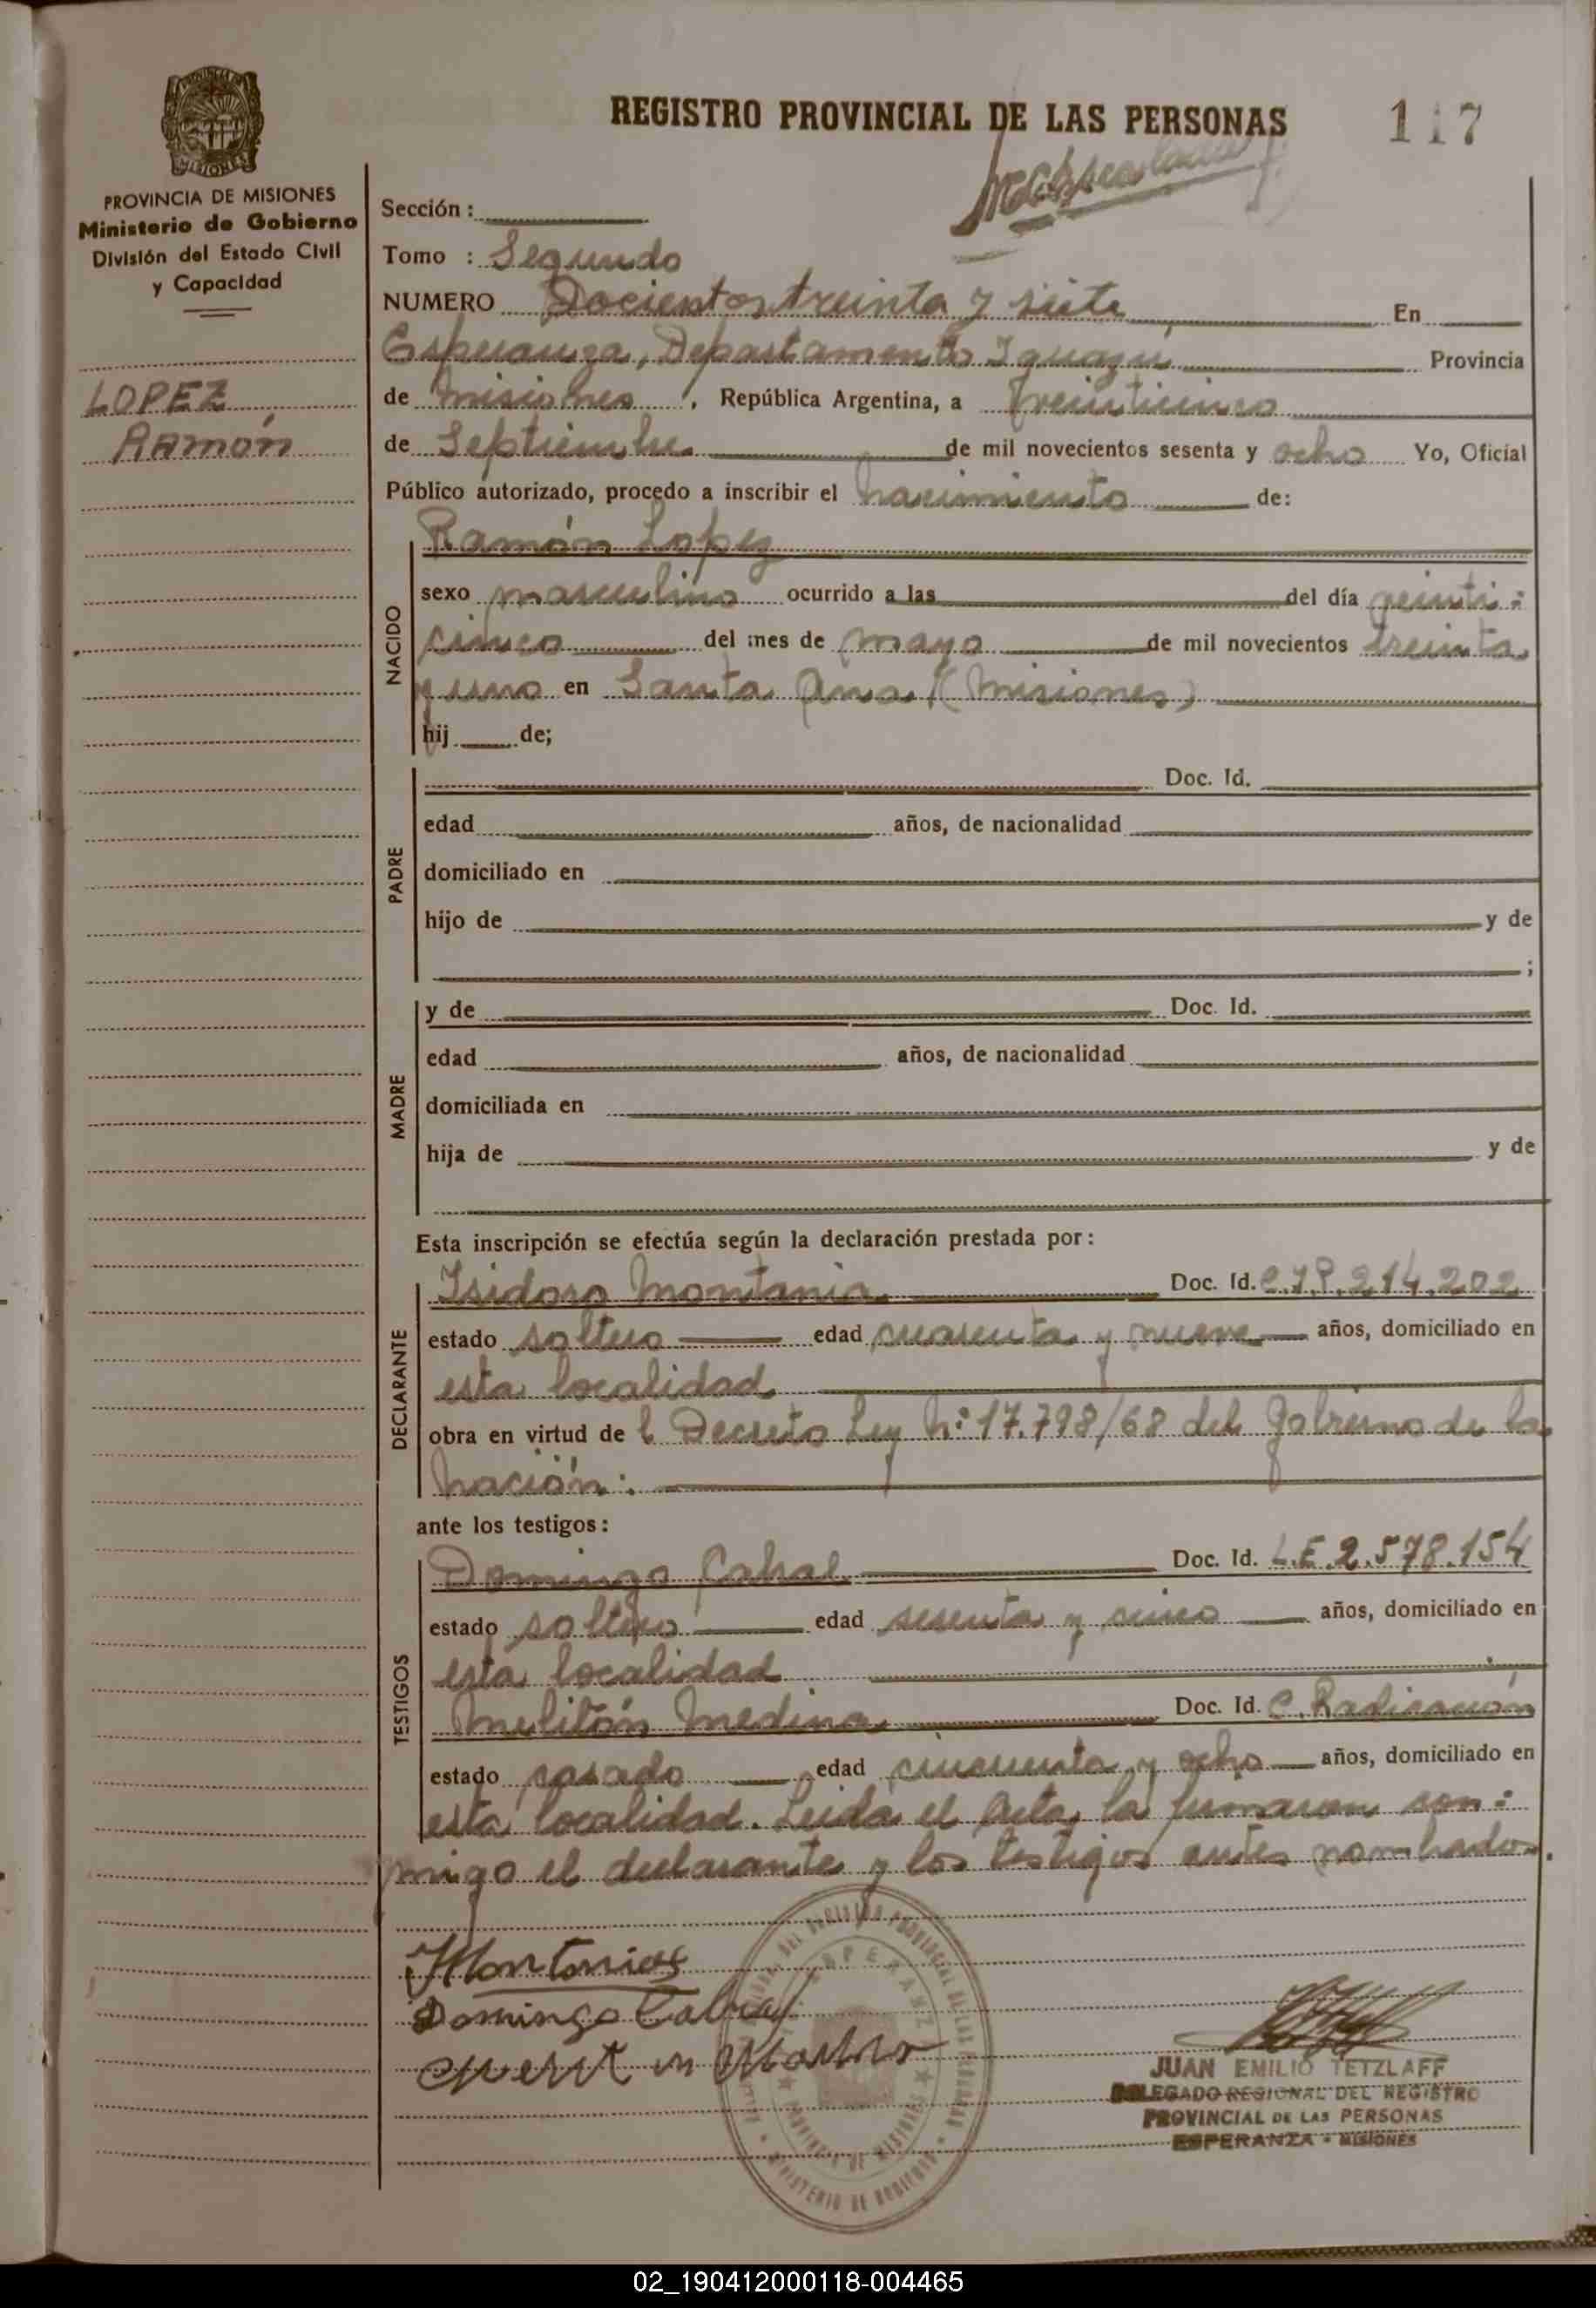 REGISTRO PROVINCIAL DE LAS PERSONAS
117
MISIONES
PROVINCIA DE MISIONES
Ministerio de Gobierno
División del Estado Civil
y Capacidad
LOPEZ
Ramón
Sección :
Tomo : Segundo
NUMERO Docientos treinta y siete En
Esperanza, Departamento Iguazú Provincia
de Misiones, República Argentina, a veinticinco
de Septiembre de mil novecientos sesenta y ocho Yo, Oficial
Público autorizado, procedo a inscribir el nacimiento de:
NACIDO
Ramón Lopez
sexo masculino ocurrido a las del día veinti=
cinco del mes de mayo de mil novecientos treinta
y uno en Santa Ana (Misiones)
hij de;
PADRE
Doc. Id.
edad años, de nacionalidad
domiciliado en
hijo de y de
;
MADRE
y de Doc. Id.
edad años, de nacionalidad
domiciliada en
hija de y de
Esta inscripción se efectúa según la declaración prestada por:
DECLARANTE
Isidoro Montania Doc. Id. C.I.P. 214.202
estado soltero edad cuarenta y nueve años, domiciliado en
esta localidad
obra en virtud de l Decreto Ley N: 17.798/68 del Gobierno de la
Nación:
ante los testigos:
TESTIGOS
Domingo Cabral Doc. Id. L.E. 2.578.154
estado soltero edad sesenta y cinco años, domiciliado en
esta localidad
Melitón Medina Doc. Id. C. Radicación
estado casado edad cincuenta y ocho años, domiciliado en
esta localidad. Leida el Acta, la firmaron con=
migo el declarante y los testigos antes nombrados.
Domingo Cabral
JUAN EMILIO TETZLAFF
DELEGADO REGIONAL DEL REGISTRO
PROVINCIAL DE LAS PERSONAS
ESPERANZA - MISIONES
02_190412000118-004465